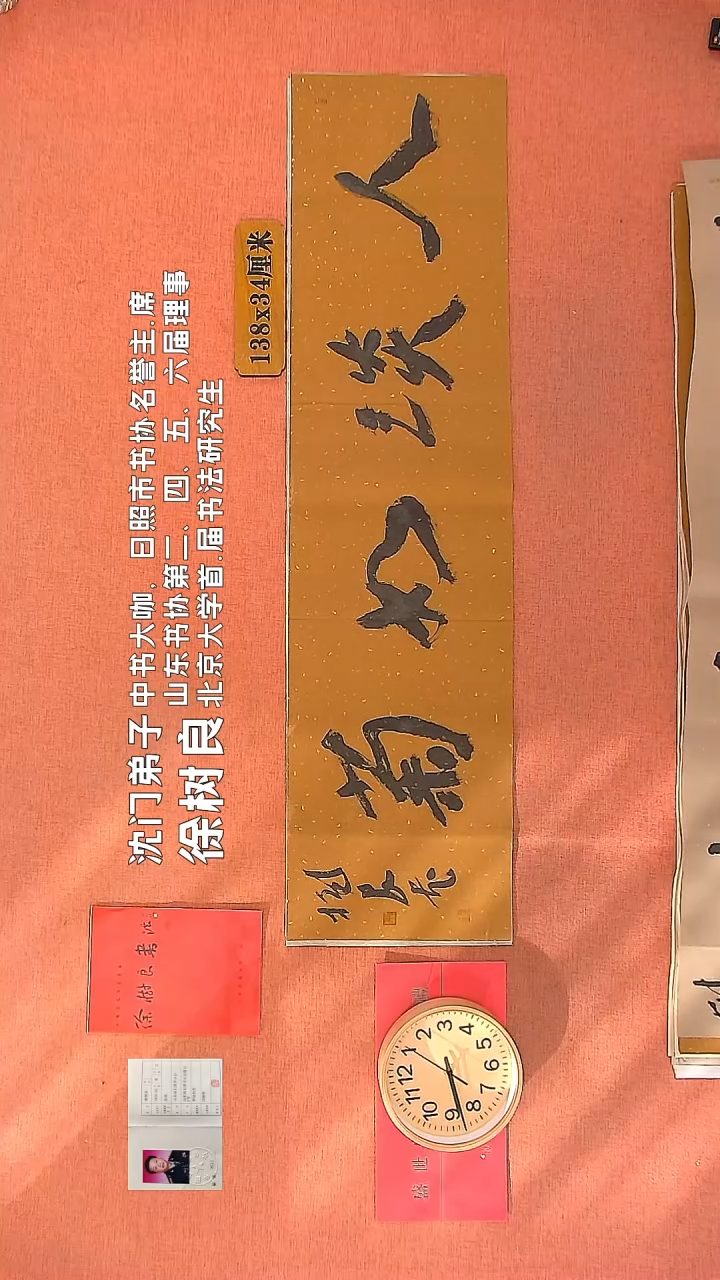 沈门弟子
徐树良
中书大咖，日照市书协名誉主.席
山东书协第三、四、五、六届理事
北京大学首.届书法研究生
138x34厘米
人淡如菊
徐樹良書法
盛世
12
1
2
3
4
5
6
7
8
9
10
11